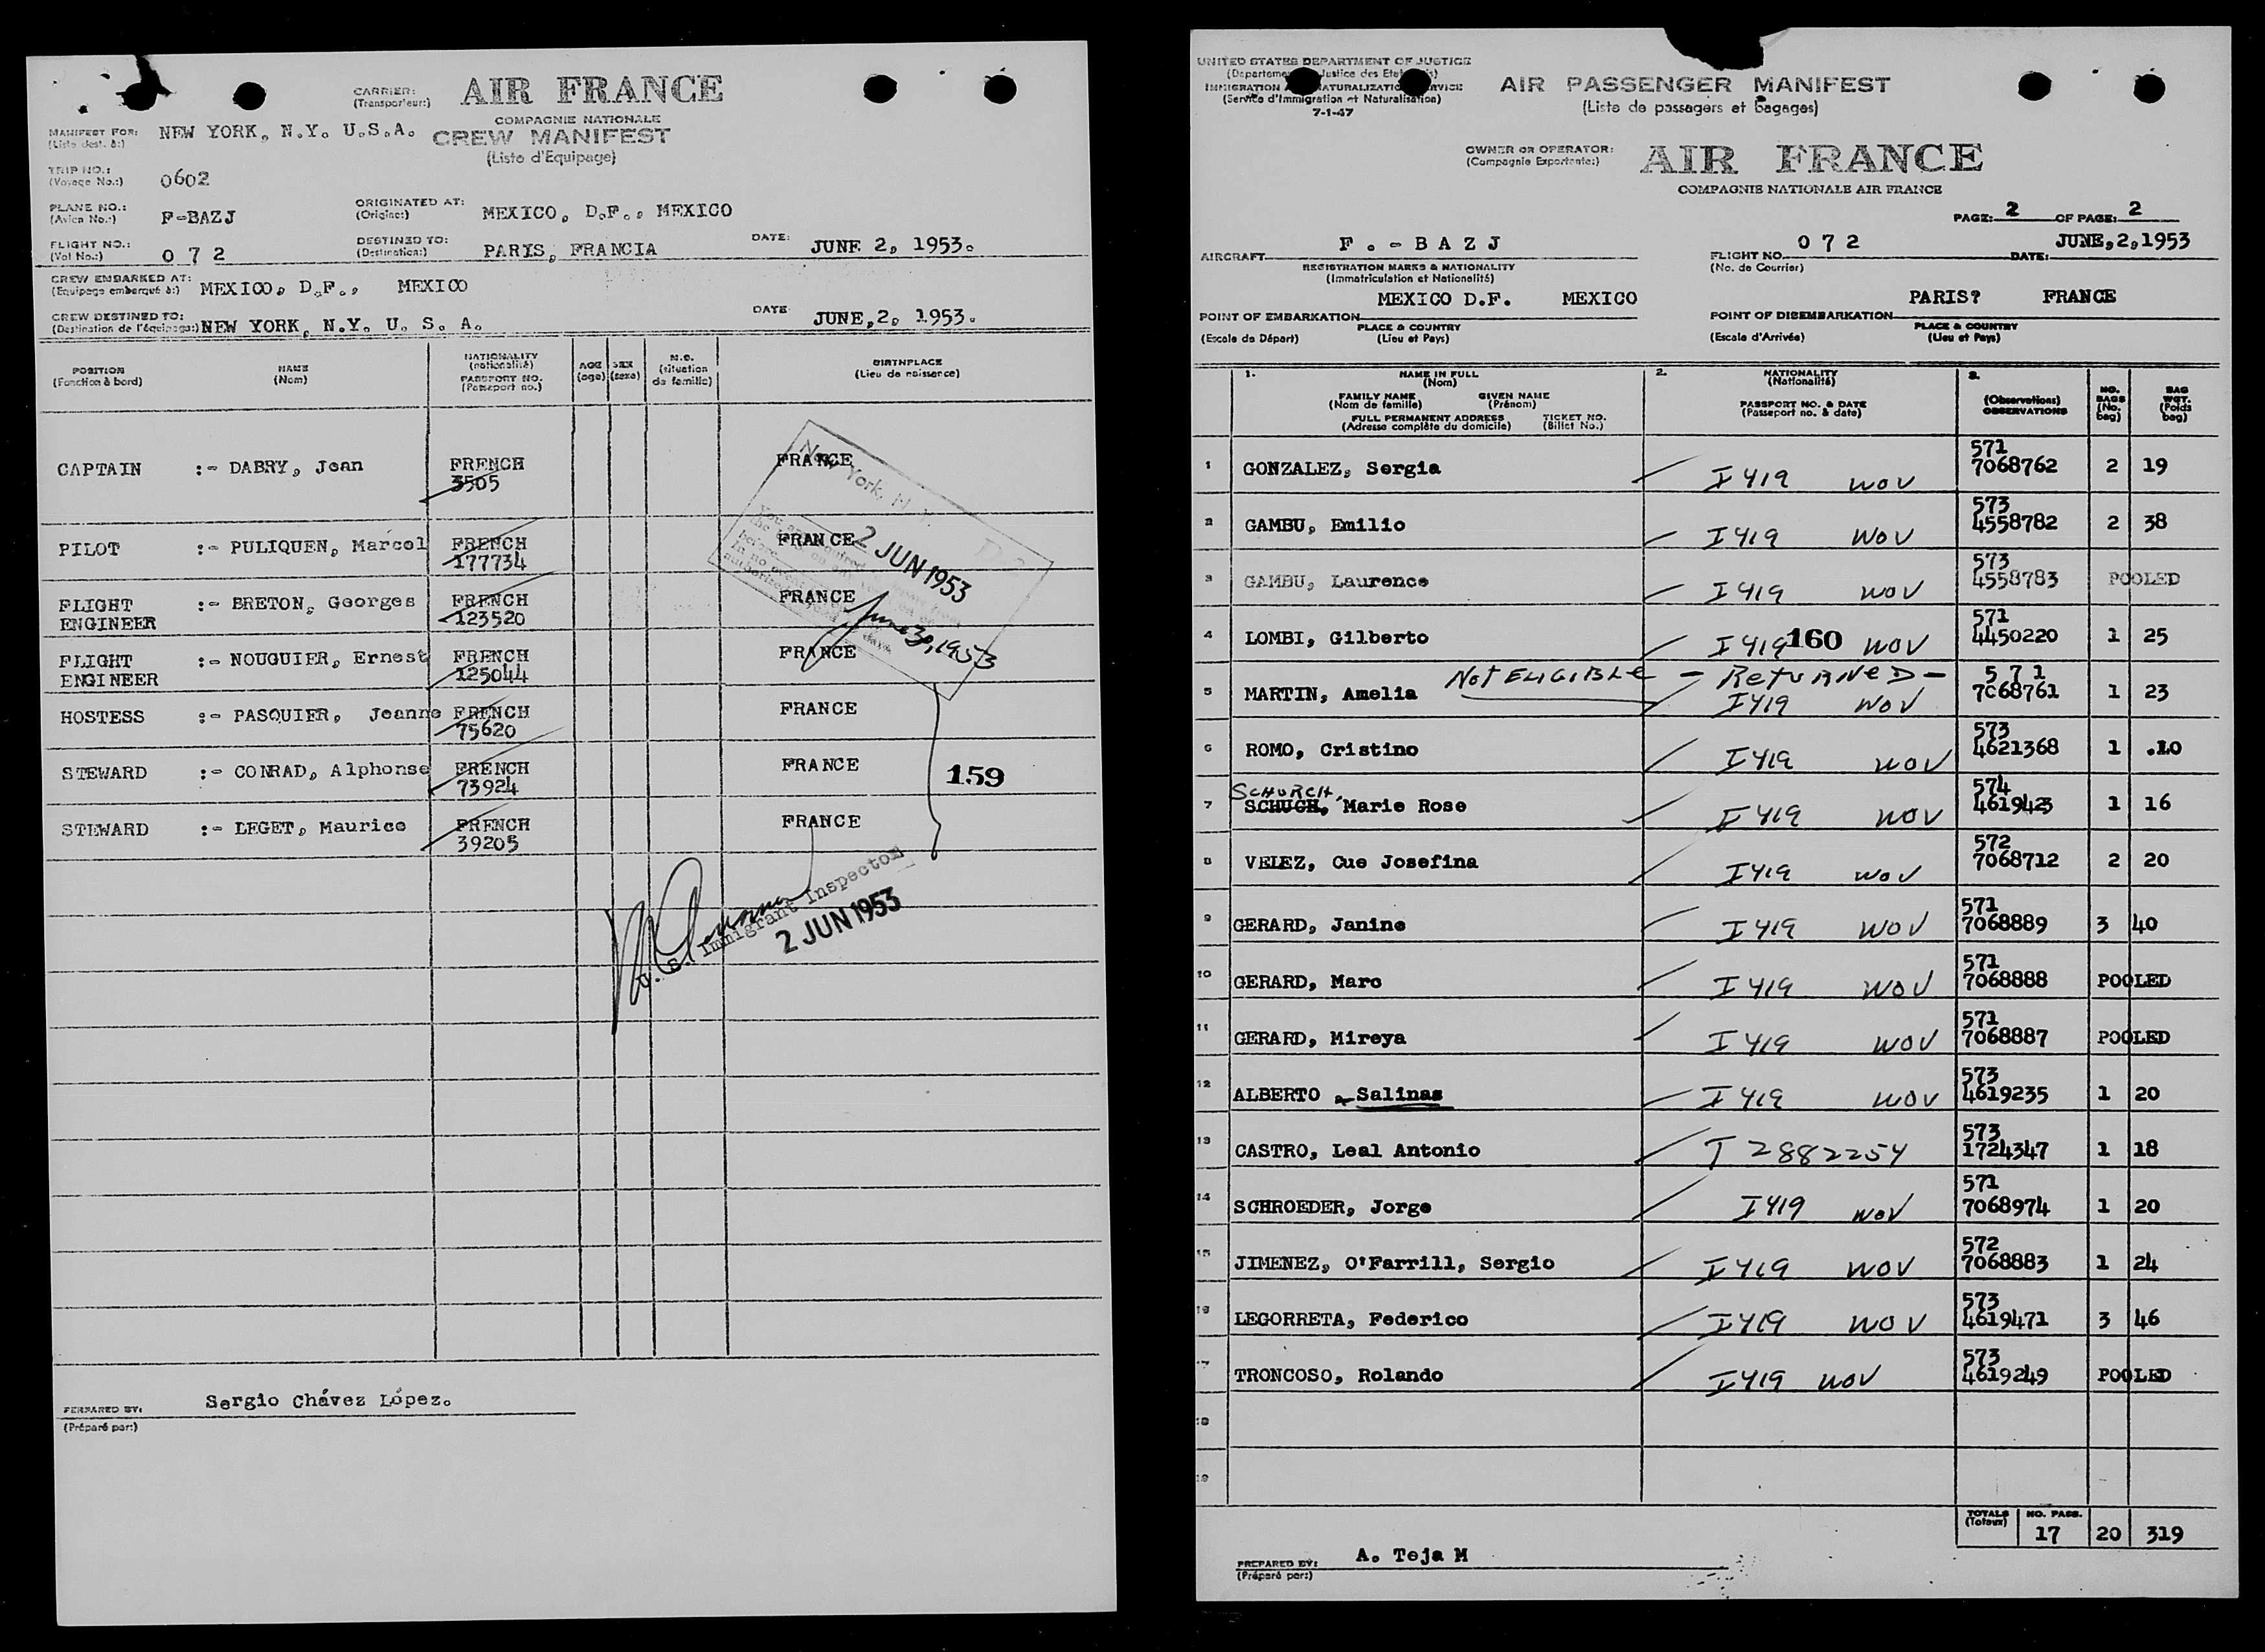 CARRIER:
(Transporteur:)
AIR FRANCE
COMPAGNIE NATIONALE
MANIFEST FOR:
(Liste dest. à:)
NEW YORK, N.Y. U.S.A.
CREW MANIFEST
(Liste d'Equipage)
TRIP NO.:
(Voyage No.:)
0602
PLANE NO.:
(Avion No.:)
F-BAZJ
ORIGINATED AT:
(Origine:)
MEXICO, D.F., MEXICO
FLIGHT NO.:
(Vol No.:)
0 7 2
DESTINED TO:
(Destination:)
PARIS, FRANCIA
DATE:
JUNE 2, 1953.
CREW EMBARKED AT:
(Equipage embarqué à:)
MEXICO, D.F., MEXICO
CREW DESTINED TO:
(Destination de l'équipage:)
NEW YORK, N.Y. U. S. A.
DATE
JUNE,2, 1953.
POSITION
(Fonction à bord)
NAME
(Nom)
NATIONALITY
(nationalité)
PASSPORT NO.
(Passeport no.)
AGE
(age)
SEX
(sexe)
M.S.
(situation
de famille)
BIRTHPLACE
(Lieu de naissance)
CAPTAIN :- DABRY, Jean FRENCH FRANCE
3505
PILOT :- PULIQUEN, Marcel FRENCH FRANCE
177734
FLIGHT :- BRETON, Georges FRENCH FRANCE
ENGINEER 123520
FLIGHT :- NOUGUIER, Ernest FRENCH FRANCE
ENGINEER 125044
HOSTESS :- PASQUIER, Jeanne FRENCH FRANCE
75620
STEWARD :- CONRAD, Alphonse FRENCH FRANCE
73924
STEWARD :- LEGET, Maurice FRENCH FRANCE
39205
New York, N.Y.
2 JUN 1953
June 30, 1953
159
U. S. Immigrant Inspector
2 JUN 1953
PREPARED BY:
(Préparé par:)
Sergio Chávez López.
UNITED STATES DEPARTMENT OF JUSTICE
(Service d'Immigration et Naturalisation)
7-1-47
AIR PASSENGER MANIFEST
(Liste de passagers et bagages)
OWNER OR OPERATOR:
(Compagnie Exportante:)
AIR FRANCE
COMPAGNIE NATIONALE AIR FRANCE
PAGE: 2 OF PAGE: 2
AIRCRAFT F . - B A Z J
REGISTRATION MARKS & NATIONALITY
(Immatriculation et Nationalité)
FLIGHT NO. 0 7 2
(No. de Courrier)
DATE: JUNE,2,1953
POINT OF EMBARKATION MEXICO D.F. MEXICO
(Escale de Départ)
PLACE & COUNTRY
(Lieu et Pays)
POINT OF DISEMBARKATION PARIS? FRANCE
(Escale d'Arrivée)
PLACE & COUNTRY
(Lieu et Pays)
1. NAME IN FULL
(Nom)
FAMILY NAME GIVEN NAME
(Nom de famille) (Prénom)
FULL PERMANENT ADDRESS TICKET NO.
(Adresse complète du domicile) (Billet No.)
2. NATIONALITY
(Nationalité)
PASSPORT NO. & DATE
(Passeport no. & date)
3.
(Observations)
OBSERVATIONS
NO.
BAGS
(No.
bag)
BAG
WGT.
(Poids
bag)
571
1 GONZALEZ, Sergia I 419 WOV 7068762 2 19
573
2 GAMBU, Emilio I 419 WOV 4558782 2 38
573
3 GAMBU, Laurence I 419 WOV 4558783 POOLED
571
4 LOMBI, Gilberto I 419 160 WOV 4450220 1 25
NOT ELIGIBLE - RETURNED - 5 7 1
5 MARTIN, Amelia I419 WOV 7C68761 1 23
573
6 ROMO, Cristino I 419 WOV 4621368 1 .10
SCHURCH, 574
7 SCHUCH, Marie Rose I 419 WOV 4619423 1 16
572
8 VELEZ, Cue Josefina I419 WOV 7068712 2 20
571
9 GERARD, Janine I 419 WOV 7068889 3 40
571
10 GERARD, Marc I 419 WOV 7068888 POOLED
571
11 GERARD, Mireya I 419 WOV 7068887 POOLED
573
12 ALBERTO Salinas I 419 WOV 4619235 1 20
573
13 CASTRO, Leal Antonio T 2882254 1724347 1 18
571
14 SCHROEDER, Jorge I 419 WOV 7068974 1 20
572
15 JIMENEZ, O'Farrill, Sergio I 419 WOV 7068883 1 24
573
16 LEGORRETA, Federico I419 WOV 4619471 3 46
573
17 TRONCOSO, Rolando I419 WOV 4619249 POOLED
18
19
TOTALS
(Totaux)
NO. PASS.
17 20 319
PREPARED BY:
(Préparé par:)
A. Teja M